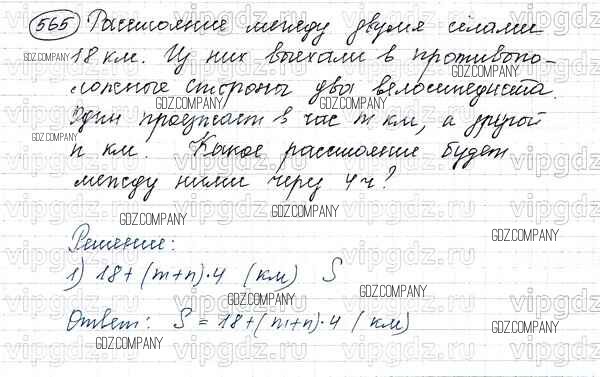 565 Расстояние между двумя сёлами
18 км. Из них выехали в противопо-
ложные стороны два велосипедиста.
Один проезжает в час m км, а другой
n км. Какое расстояние будет
между ними через 4 ч?
Решение:
1) 18+(m+n)·4 (км) S
Ответ: S = 18+(m+n)·4 (км)